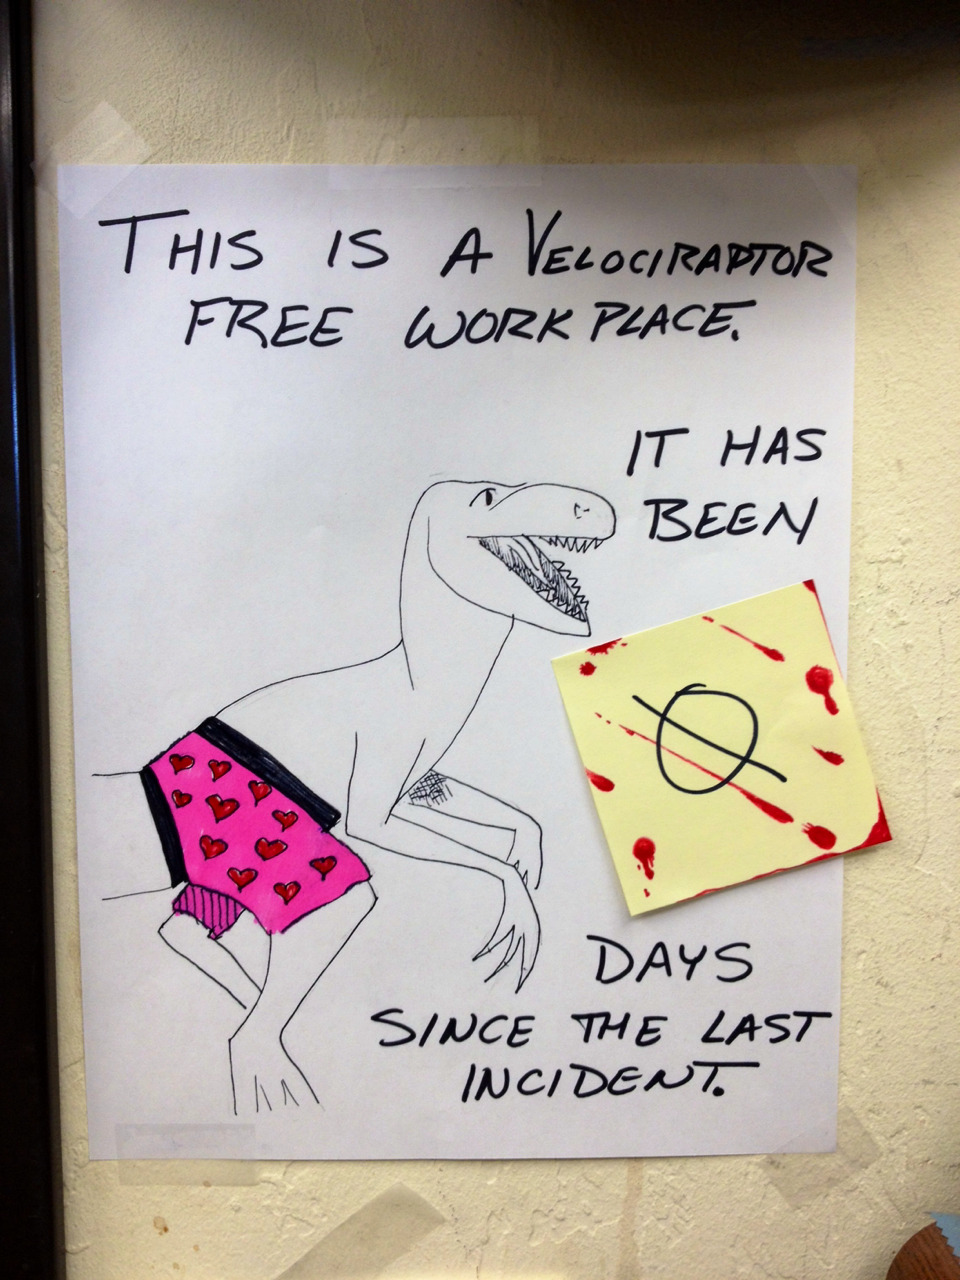 THIS IS A VELOCIRAPTOR
FREE WORK PLACE.
IT HAS
BEEN
0
DAYS
SINCE THE LAST
INCIDENT.